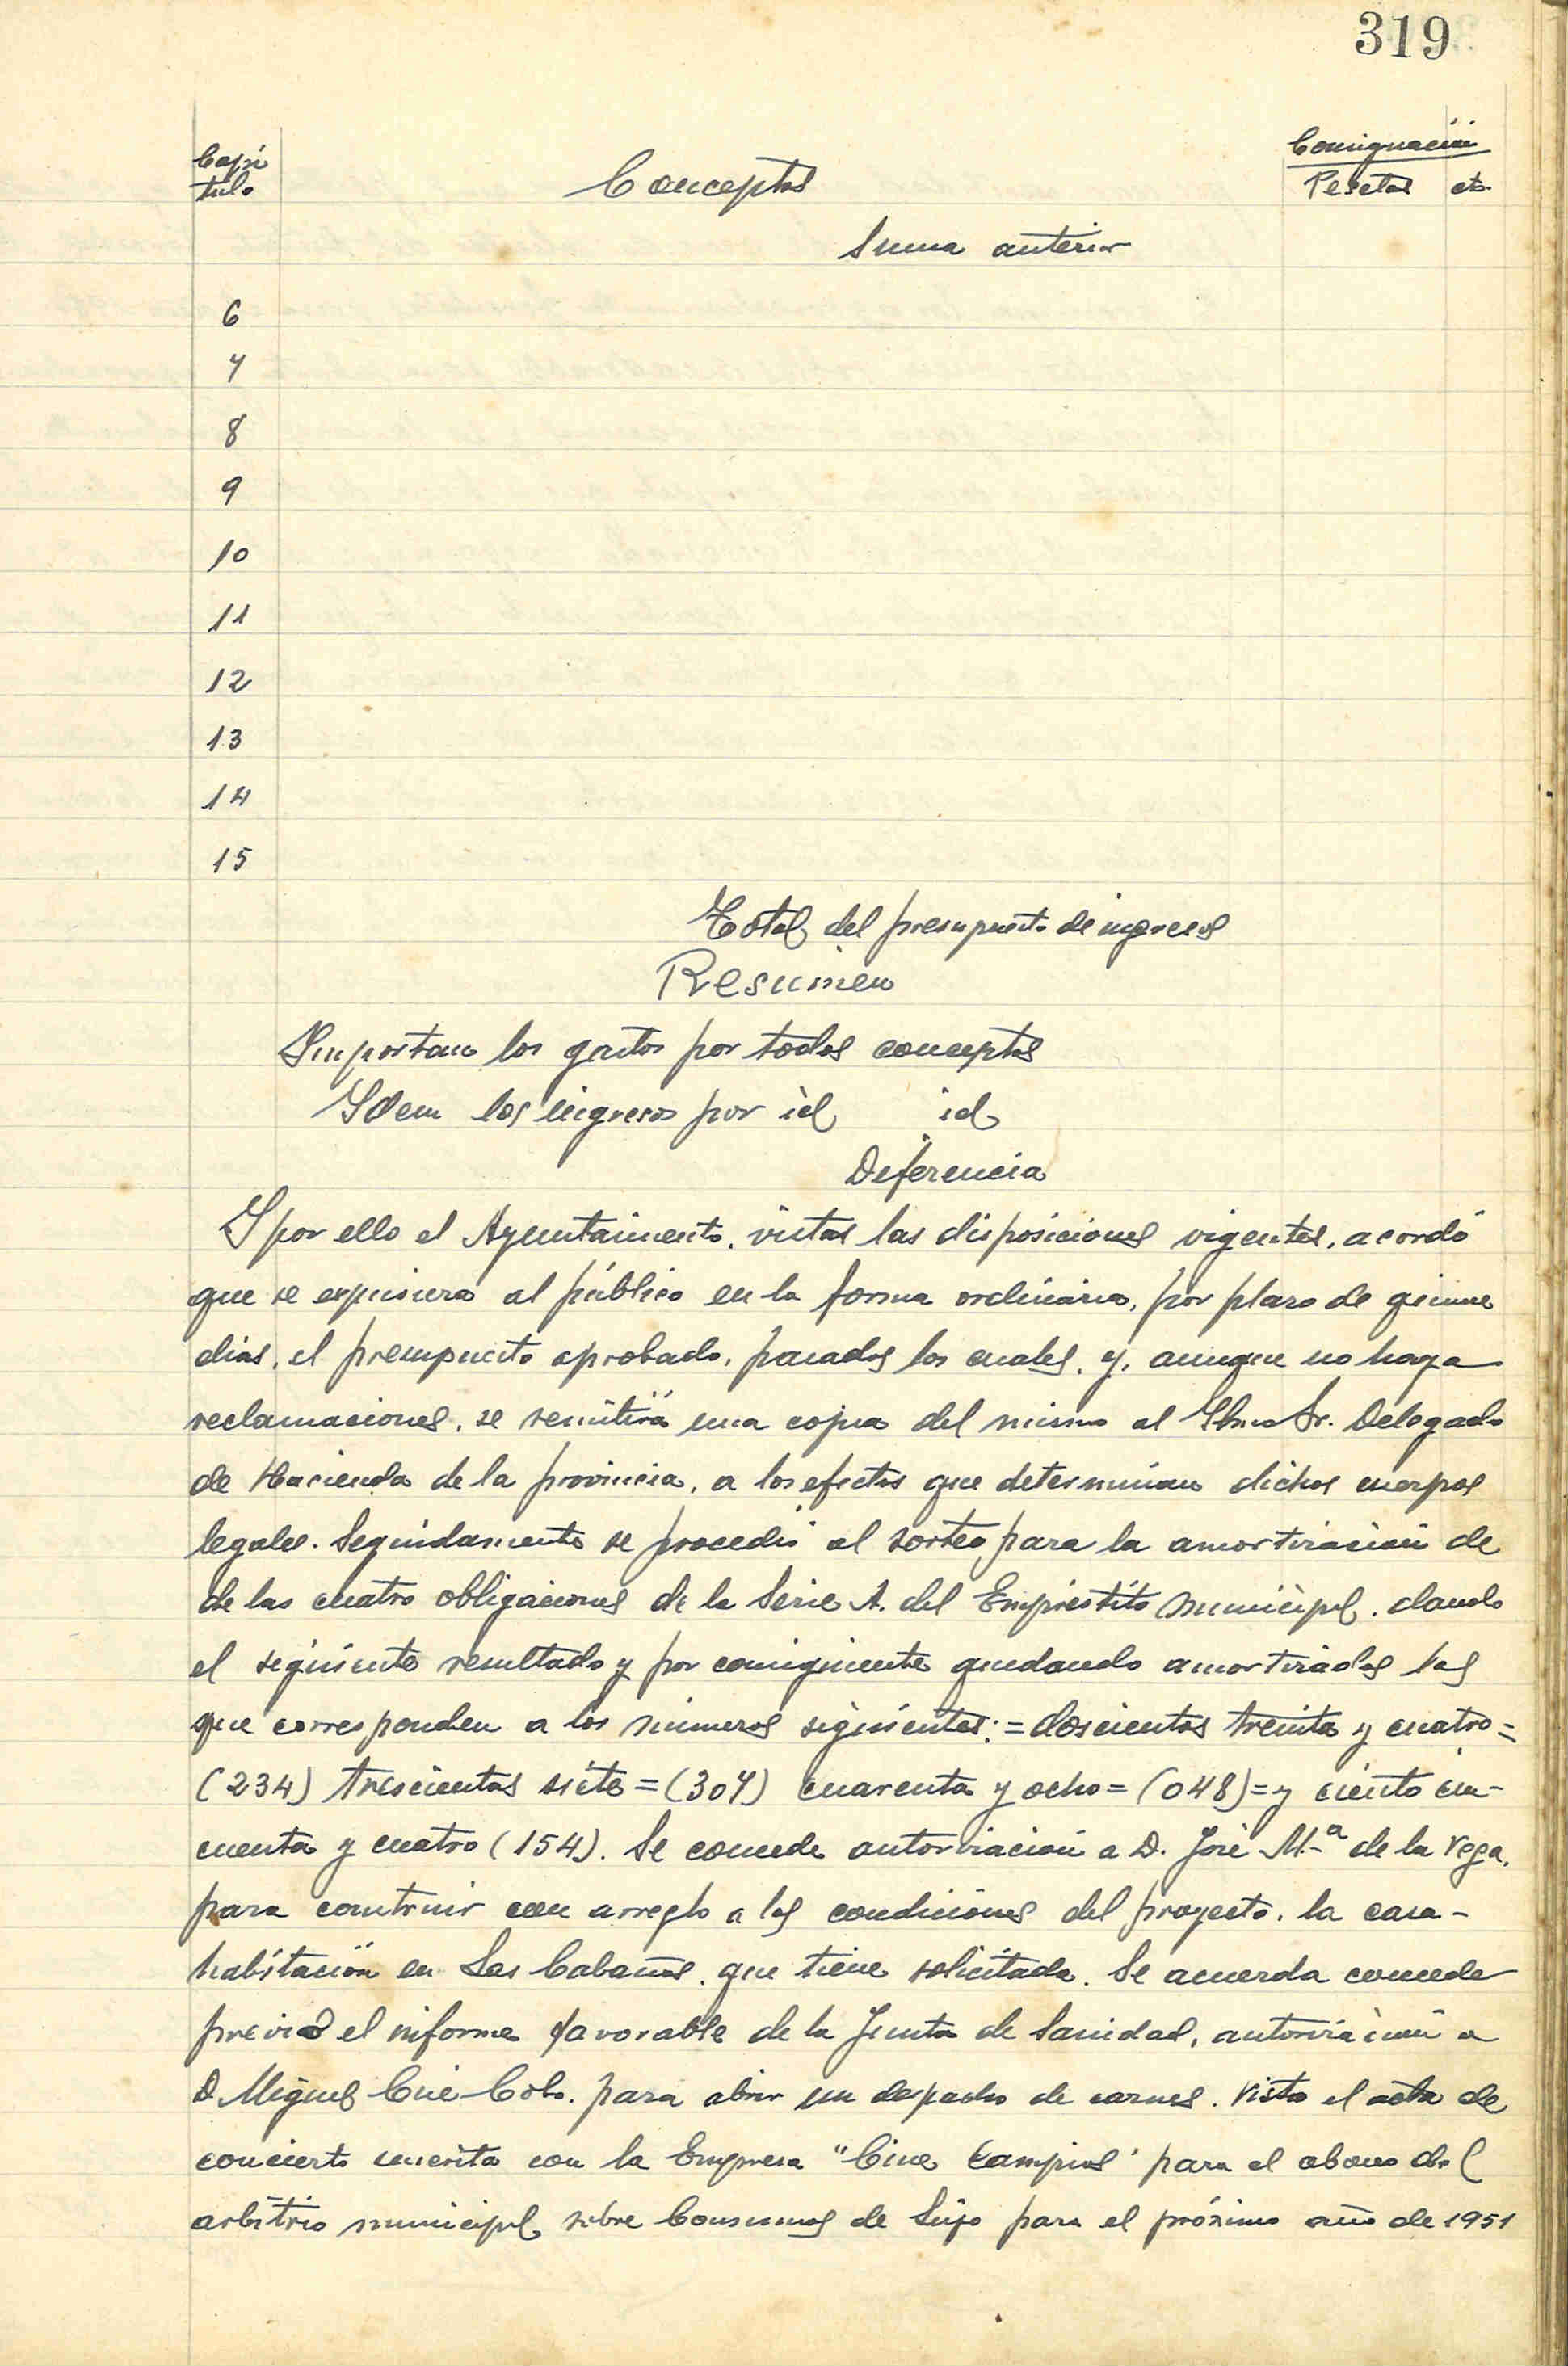 319
Capí
tulo
Conceptos
Consignación
Pesetas cts.
Suma anterior
6
7
8
9
10
11
12
13
14
15
Total del presupuesto de ingresos
Resumen
Importan los gastos por todos conceptos
Idem los ingresos por id id
Deferencia
Y por ello el Ayuntamiento, vistas las disposiciones vigentes, acordó
que se expusiera al público en la forma ordinaria, por plazo de quince
dias, el presupuesto aprobado, pasados los cuales, y, aunque no haya
reclamaciones, se remitirá una copia del mismo al Ilmo Sr. Delegado
de Hacienda de la provincia, a los efectos que determinan dichos cuerpos
legales. Seguidamente se procedió al sorteo para la amortización de
de las cuatro obligaciones de la Serie A. del Empréstito Municipal, dando
el siguiente resultado y por consiguiente quedando amortizadas las
que corresponden a los números siguientes: = doscientos treinta y cuatro =
(234) trescientos siete = (307) cuarenta y ocho = (048) = y ciento cin-
cuenta y cuatro (154). Se concede autorización a D. José M.ª de la Vega,
para construir con arreglo a las condiciones del proyecto, la casa-
habitación en Las Cabañas, que tiene solicitada. Se acuerda conceder
previo el informe favorable de la Junta de Sanidad, autorización a
D. Miguel Cué Cobo. para abrir un despacho de carnes. Visto el acta de
concierto suscrita con la Empresa "Cine Campios" para el abono del
arbitrio municipal sobre Consumos de Lujo para el próximo año de 1951